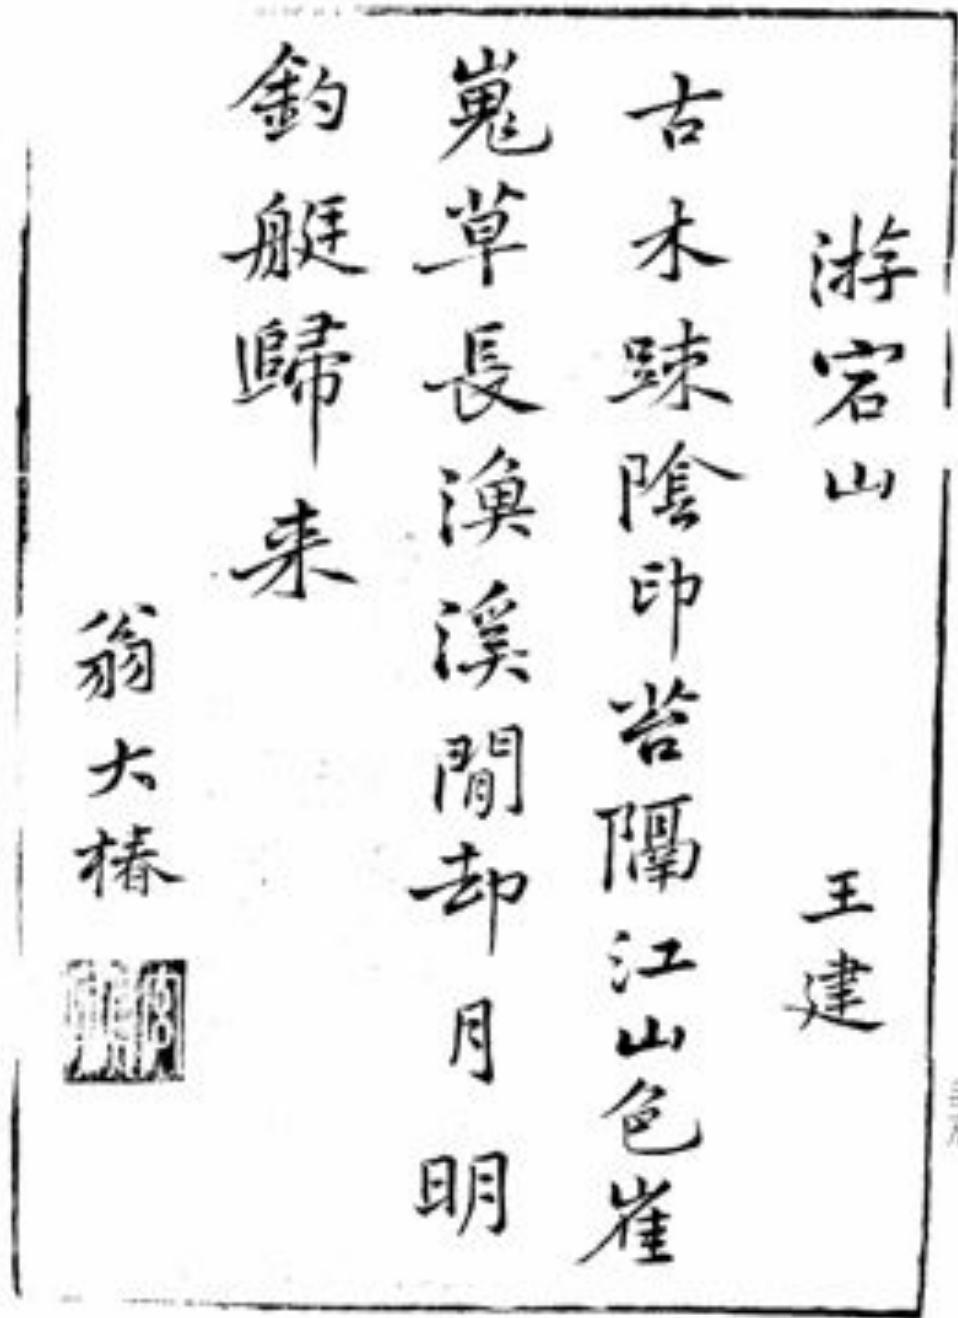 游宕山 王建
古木踈陰印苔隔江山色崔
嵬草長漁溪閒却月明
釣艇歸来
翁大椿